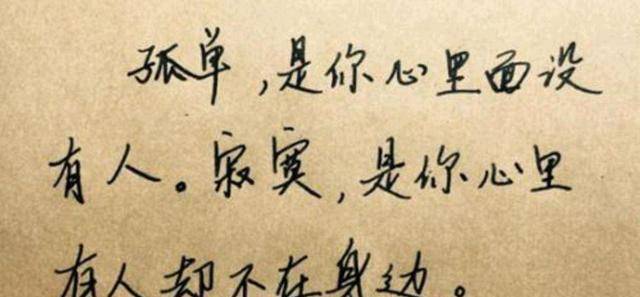 孤单，是你心里面没
有人。寂寞，是你心里
有人却不在身边。